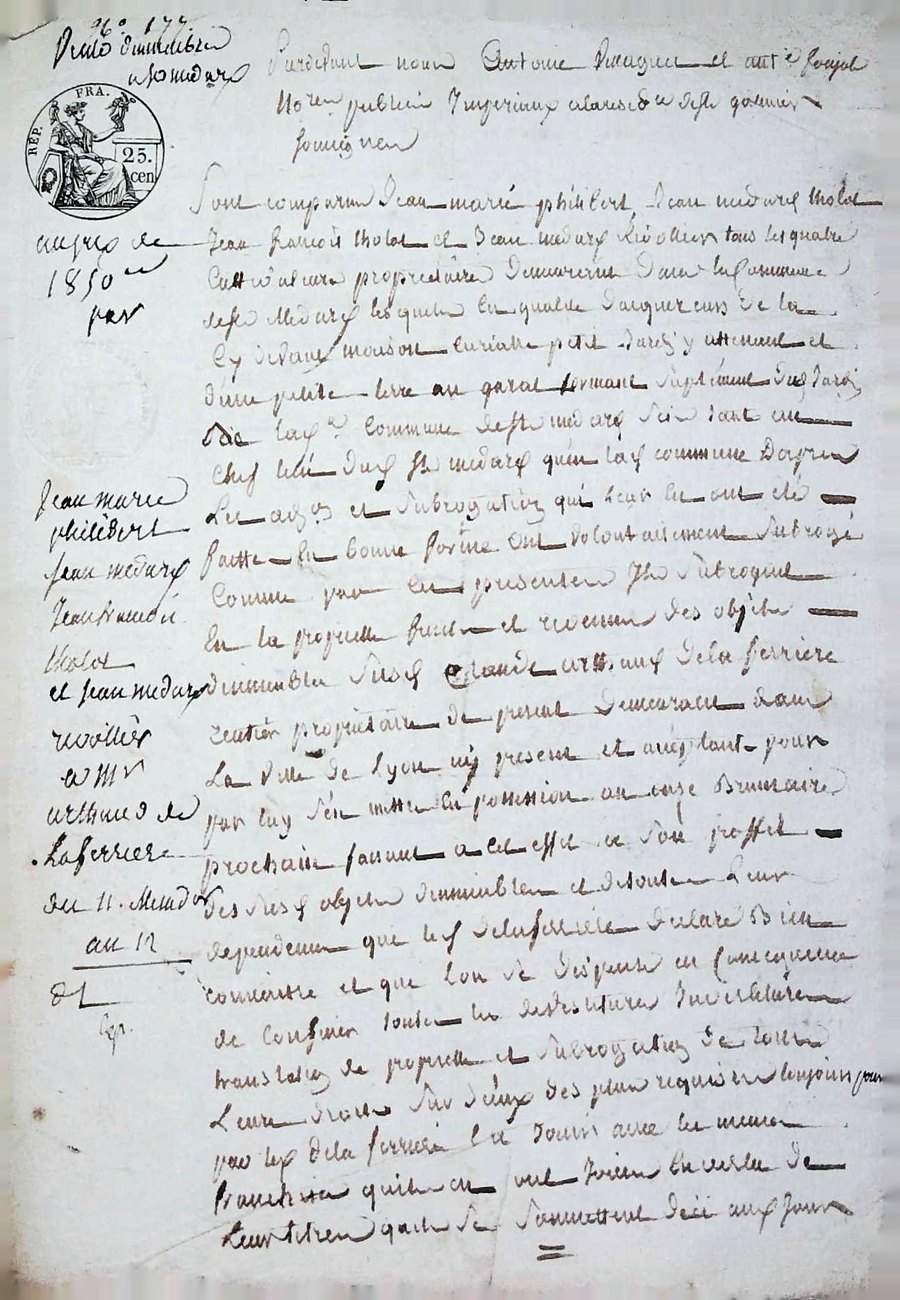 N° 177
Vente d'immeubles
a st medard
RÉP. FRA.
25.
cen
au prix de
1850
par
Jean marie
philibert
jean medard
Jean francois
tholot
et jean medard
rivollier
a Mr
arthaud de
Laferriere
du 11. Messidor
an 12
Pardevant nous Antoine et ant.e
No.res publics Imperiaux de st galmier
soussignes
Sont comparus Jean marie philibert, Jean medard tholot
Jean francois tholot et Jean medard Rivollier tous les quatre
Cultivateurs proprietaires demeurant dans la Commune
de st Medard lesquels En qualité dacquereurs de la
Cy devant maison Curialle petit Jardin y attenant et
d'une petite terre formant suplément dud Jardin
Sis lad.e Commune de st medard sein tant au
Chef lieu dud st medard qu'en lad commune
Les et subrogation qui leur En ont été
faitte En bonne forme Ont volontairement subrogé
Comme par les presentes Ils subrogent
En la propriette fruits et revenus des objets
d'immeubles susd Claude arthaud de la ferriere
rentier propriétaire de present Demeurant dans
La Ville de Lyon icy present et acceptant pour
par luy s'en mettre En possession au onze Brumaire
prochain faisant a cet effet a son proffit
des susd objets d'immeubles et de toutes Leurs
dependences que led delaferriere declare Bien
connoitre et que l'on se dispense en Consequence
de Confiner toutes les devestitures Investitures
translation de propriette et subrogation de tous
Leurs droits sur d'eux des plus requises toujours pour
par led dela ferriere En Jouir avec les memes
franchises quils en ont Joui En vertu de
Leurs titres quils se soumettent d'ici aux Jours